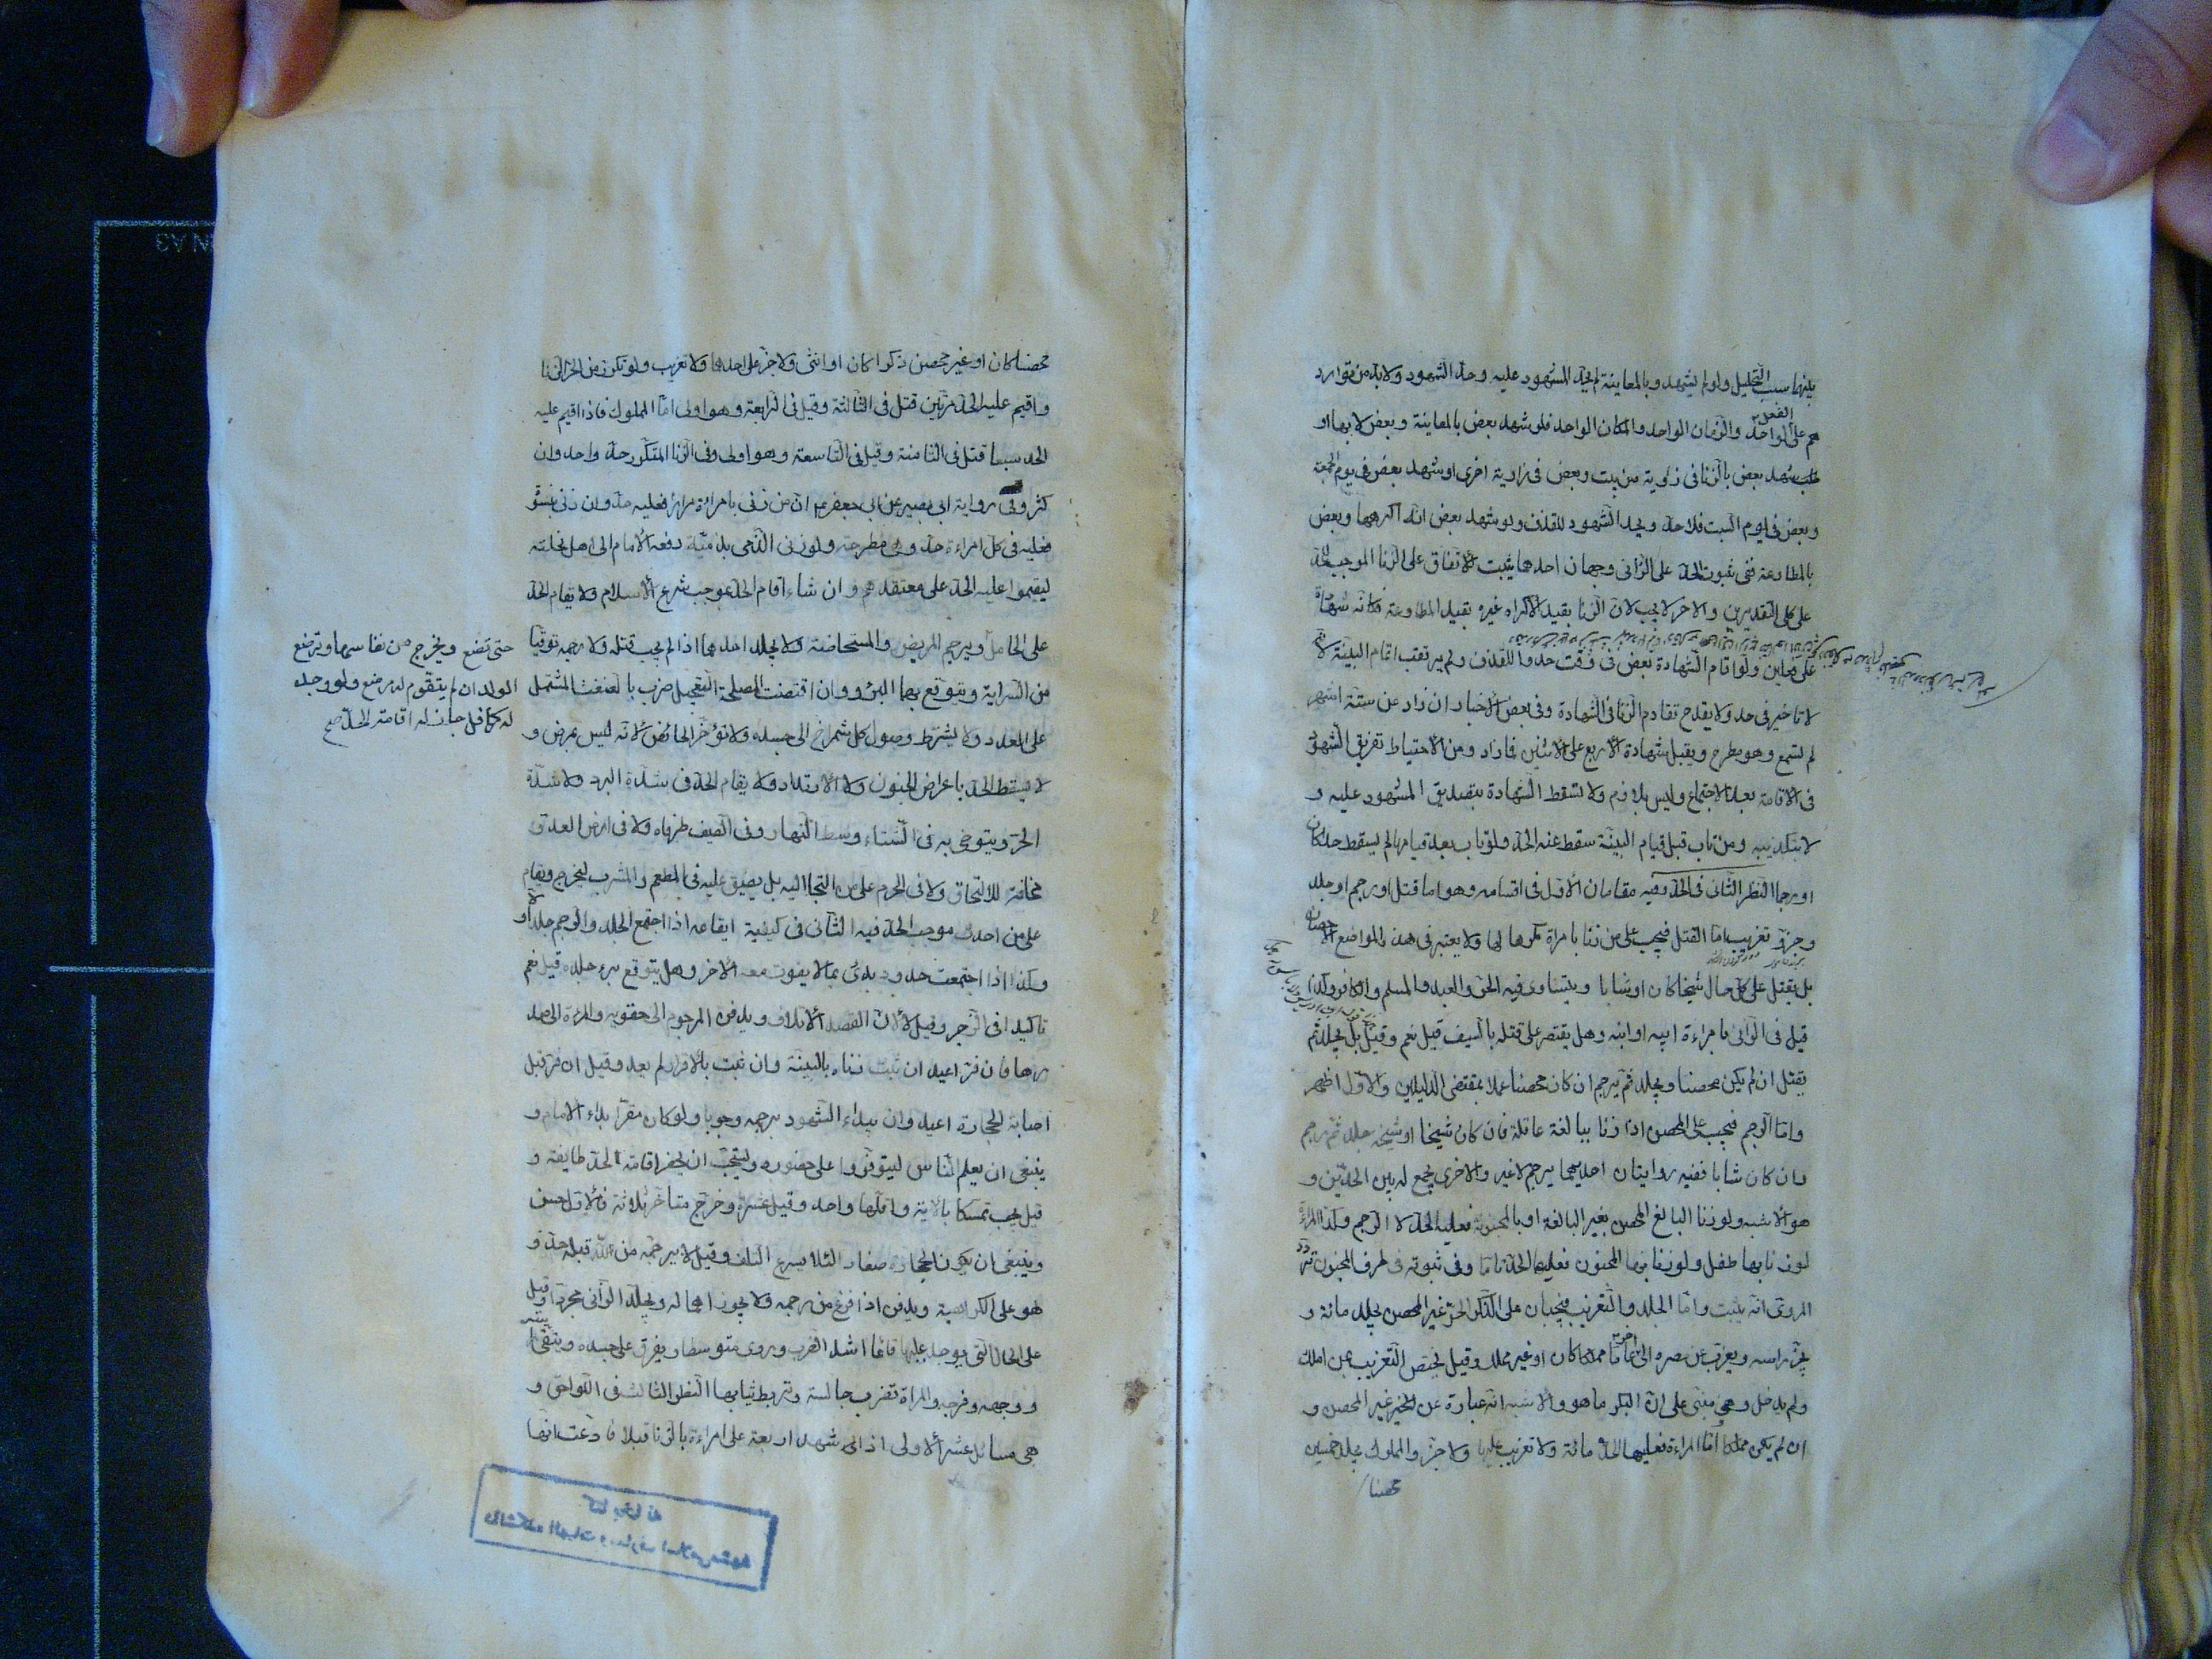 بينهما سبب التحليل ولو لم يشهدوا بالمعاينة لم يحد المشهود عليه وحد الشهود ولا بد من توارد
هم على الفعل الواحد والزمان الواحد والمكان الواحد فلو شهد بعض بالمعاينة وبعض لا بها او
شهد بعض بالزنا فى زاوية من بيت وبعض فى زاوية اخرى او شهد بعض فى يوم الجمعة
وبعض فى يوم السبت فلا حد ويحد الشهود للقذف ولو شهد بعض انه اكرهها وبعض
بالمطاوعة ففى ثبوت الحد على الزانى وجهان احدهما يثبت للاتفاق على الزنا الموجب للحد
على كلى التقديرين والاخر لا يجب لان الزنا بقيد الاكراه غيره بقيد المطاوعة فكانه شهادة
على فعلين ولو اقام الشهادة بعض فى وقت حدوا للقذف ولم يرتقب اتمام البينة لا
لا تاخير فى حد ولا يقدح تقادم الزنا فى الشهادة وفى بعض الاخبار ان زاد عن ستة اشهر
لم تسمع وهو مطرح ويقبل شهادة الاربع على الاثنين فما زاد ومن الاحتياط تفريق الشهود
فى الاقامة بعد الاجتماع وليس بلازم ولا تسقط الشهادة بتصديق المشهود عليه و
لا بتكذيبه ومن تاب قبل قيام البينة سقط عنه الحد ولو تاب بعد قيامها لم يسقط حدا كان
او رجما النظر الثانى فى الحد وفيه مقامان الاول فى اقسامه وهو اما قتل او رجم او جلد
وجز و تغريب اما القتل فيجب على من زنا بامراة مكرها لها ولا يعتبر فى هذه المواضع الاحصان
بل يقتل على كل حال شيخا كان او شابا ويتساوى فيه الحر والعبد والمسلم والكافر وكذا
قيل فى الزانى بامراءة ابيه او ابنه وهل يقتصر على قتله بالسيف قيل نعم وقيل بل يجلد ثم
يقتل ان لم يكن محصنا ويجلد ثم يرجم ان كان محصنا عملا بمقتضى الدليلين والاول اظهر
واما الرجم فيجب على المحصن اذا زنا ببالغة عاقلة فان كان شيخا او شيخة جلد ثم رجم
وان كان شابا ففيه روايتان احديهما يرجم لا غير والاخرى يجمع له بين الحدين و
هو الاشبه ولو زنا البالغ المحصن بغير البالغة او بالمجنونة فعليه الحد لا الرجم وكذا المراة
لو زنا بها طفل ولو زنا بها المجنون فعليها الحد تاما وفى ثبوته فى طرف المجنون تردد
المروى انه يثبت واما الجلد والتغريب فيجبان على الذكر الحر غير المحصن يجلد مائة و
يجز راسه ويغرب عن مصره الى اخر عاما مملكا كان او غير مملك وقيل يختص التغريب بمن املك
ولم يدخل وهى مبنى على ان البكر ما هو والاشبه انه عبارة عن غير المحصن و
ان لم يكن مملكا اما المراءة فعليها الجلد مائة ولا تغريب عليها ولا جز والمملوك يجلد خمسين
محصنا
محصنا كان او غير محصن ذكرا كان او انثى ولا جز على احدهما ولا تغريب ولو تكرر من الحر الزنا
واقيم عليه الحد مرتين قتل فى الثالثة وقيل فى الرابعة وهو اولى اما المملوك فاذا اقيم عليه
الحد سبعا قتل فى الثامنة وقيل فى التاسعة وهو اولى وفى الزنا المتكرر حد واحد وان
كثر وفى رواية ابى بصير عن ابى جعفر ان من زنى بامراءة مرارا فعليه حد وان زنى بنسوة
فعليه فى كل امراءة حد وهى مطرحة ولو زنى الذمى بذمية دفعه الامام الى اهل نحلته
ليقيموا عليه الحد على معتقدهم وان شاء اقام الحد بموجب شرع الاسلام ولا يقام الحد
على الحامل ويرجم المريض والمستحاضة ولا يجلد احدهما اذا لم يجب قتله ولا رجمه توقيا
من السراية ويتوقع بهما البرؤ وان اقتضت المصلحة التعجيل ضرب بالضغث المشتمل
على العدد ولا يشترط وصول كل شمراخ الى جسده ولا تؤخر الحائض لانه ليس بمرض و
لا يسقط الحد باعراض الجنون ولا الارتداد ولا يقام الحد فى شدة البرد ولا شدة
الحر ويتوخى به فى الشتاء وسط النهار وفى الصيف طرفاه ولا فى ارض العدو
مخافة للالتحاق ولا فى الحرم على من التجا اليه بل يضيق عليه فى المطعم والمشرب ليخرج ويقام
على من احدث موجب الحد فيه الثانى فى كيفية ايقاعه اذا اجتمع الجلد والرجم جلد اولا
وكذا اذا اجتمعت حدود بدئ بما لا يفوت معه الاخر وهل يتوقع برء جلده قيل نعم
تاكيدا فى الزجر وقيل لا لان القصد الاتلاف ويدفن المرجوم الى حقويه والمراة الى صد
رها فان فر اعيد ان ثبت زناه بالبينة وان ثبت بالاقرار لم يعد وقيل ان فر قبل
اصابة الحجارة اعيد وان يبداء الشهود برجمه وجوبا ولو كان مقرا بداء الامام و
ينبغى ان يعلم الناس ليتوفروا على حضوره ويستحب ان يحضر اقامة الحد طايفة و
قيل يجب تمسكا بالاية واقلها واحد وقيل عشرة وخرج متاخر ثلاثة والاول حسن
وينبغى ان يكون الحجارة صغار لئلا يسرع التلف وقيل لا يرجمه من لله قبله حد و
هو على الكراهية ويدفن اذا فرغ من رجمه ولا يجوز اهماله ويجلد الزانى مجردا وقيل
على الحال التى يوجد عليها قائما اشد الضرب وروى متوسطا ويفرق على جسده ويتقى
و وجهه وفرجه والمراة تضرب جالسة وتربط ثيابها النظر الثالث فى اللواحق و
هى مسائل عشر الاولى اذا شهد اربعة على امراءة بالزنا قبلا فادعت انها
حتى تضع ويخرج من نفاسها وترضع
الولد ان لم يتفق له مرضع ولو وجد
له كافل جاز له اقامة الحد صح
كتابخانه
دانشكده الهيات و معارف اسلامى مشهد